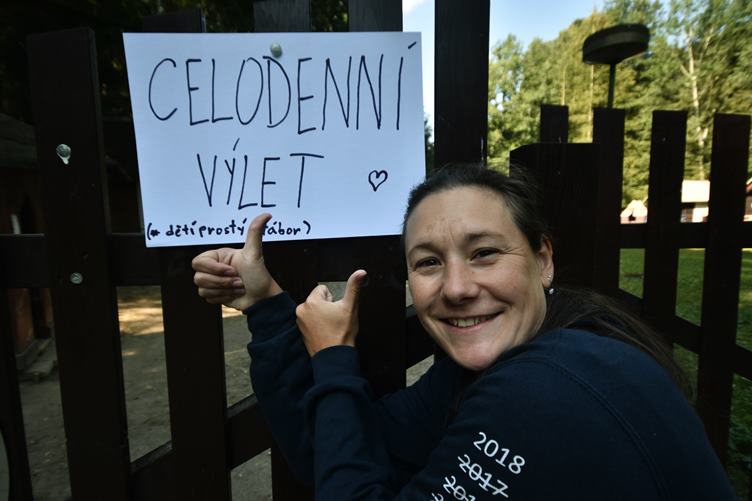 CELODENNÍ
VÝLET ♡
(* dětíprostý tábor)
2018
2017